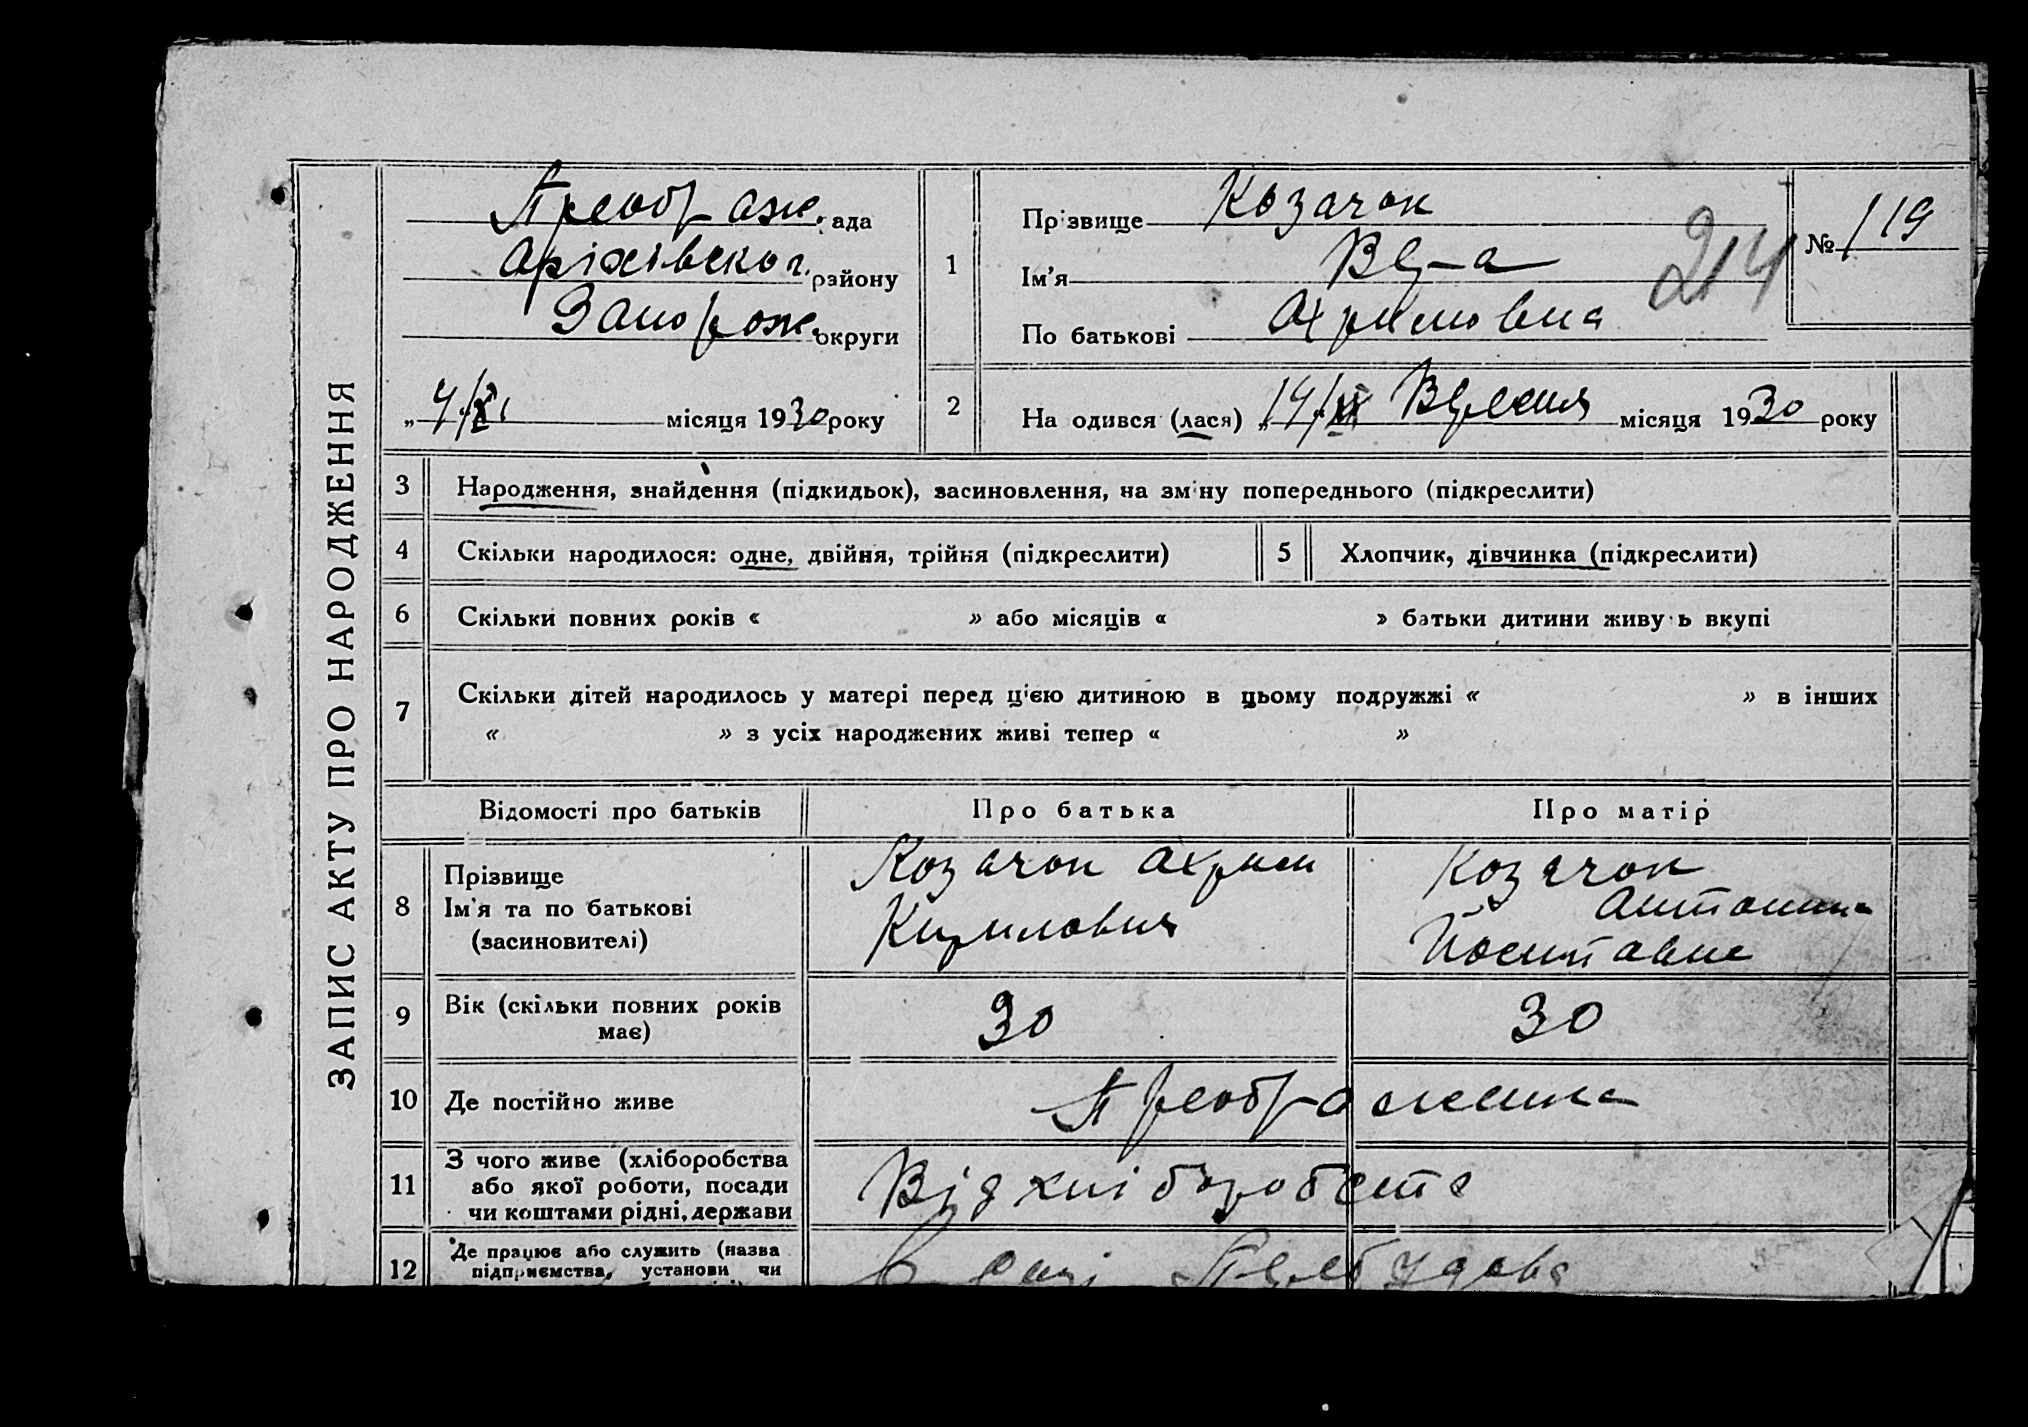 ЗАПИС АКТУ ПРО НАРОДЖЕННЯ
Преображ. ада
Оріхівськог. району
Запорож. округи
„ 4/XI місяця 1930 року
1
Прізвище Козачок
Ім'я Вера
По батькові Охримовна
№ 119
214
2
На одився (лася) „ 14/ місяця 1930 року
3 Народження, знайдення (підкидьок), засиновлення, на зміну попереднього (підкреслити)
4 Скільки народилося: одне, двійня, трійня (підкреслити)
5 Хлопчик, дівчинка (підкреслити)
6 Скільки повних років « » або місяців « » батьки дитини живу ь вкупі
7 Скільки дітей народилось у матері перед цією дитиною в цьому подружжі « » в інших
« » з усіх народжених живі тепер « »
Відомості про батьків Про батька Про матір
8 Прізвище
Ім'я та по батькові
(засиновителі)
Козачок Охрим
Кирилович
Козачок
Антонина
9 Вік (скільки повних років
має)
30 30
10 Де постійно живе Преображенка
11 З чого живе (хліборобства
або якої роботи, посади
чи коштами рідні, держави
Від хліборобства
12 Де працює або служить (назва
підприємства, установи чи